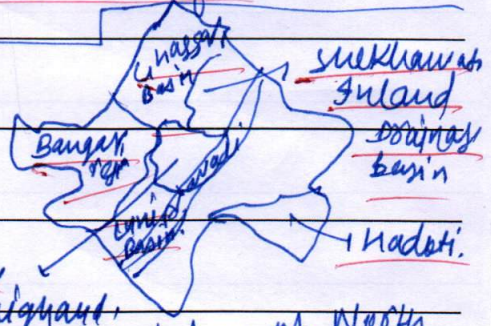 Ghaggar
Basin
Shekhawati
Inland
Drainage
basin
Bangar
Aravali
Luni
Basin
Hadoti.
North